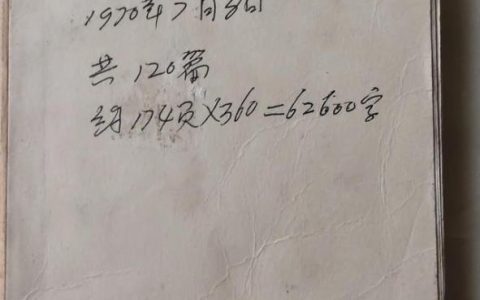 1970年7月8日
共120篇
约174页×360=62600字